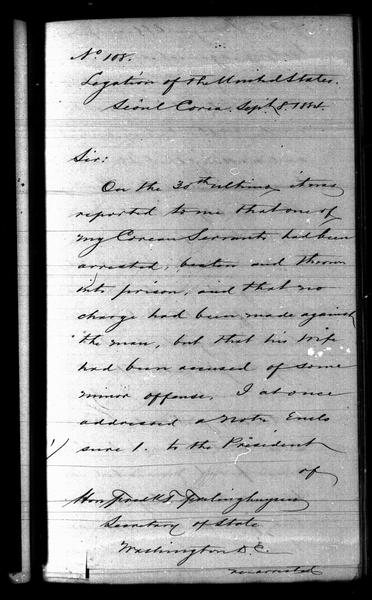 No. 108.
Legation of the United States.
Seoul Corea. Sept. 8. 1884.
Sir:
On the 30th ultimo it was
reported to me that one of
my Corean Servants had been
arrested, beaten and thrown
into prison, and that no
charge had been made against
the man, but that his wife
had been accused of some
minor offense. I at once
addressed a note, Enclo
1/ sure 1. to the President
of
Hon. Fredk. T. Frelinghuysen
Secretary of State
Washington D.C.